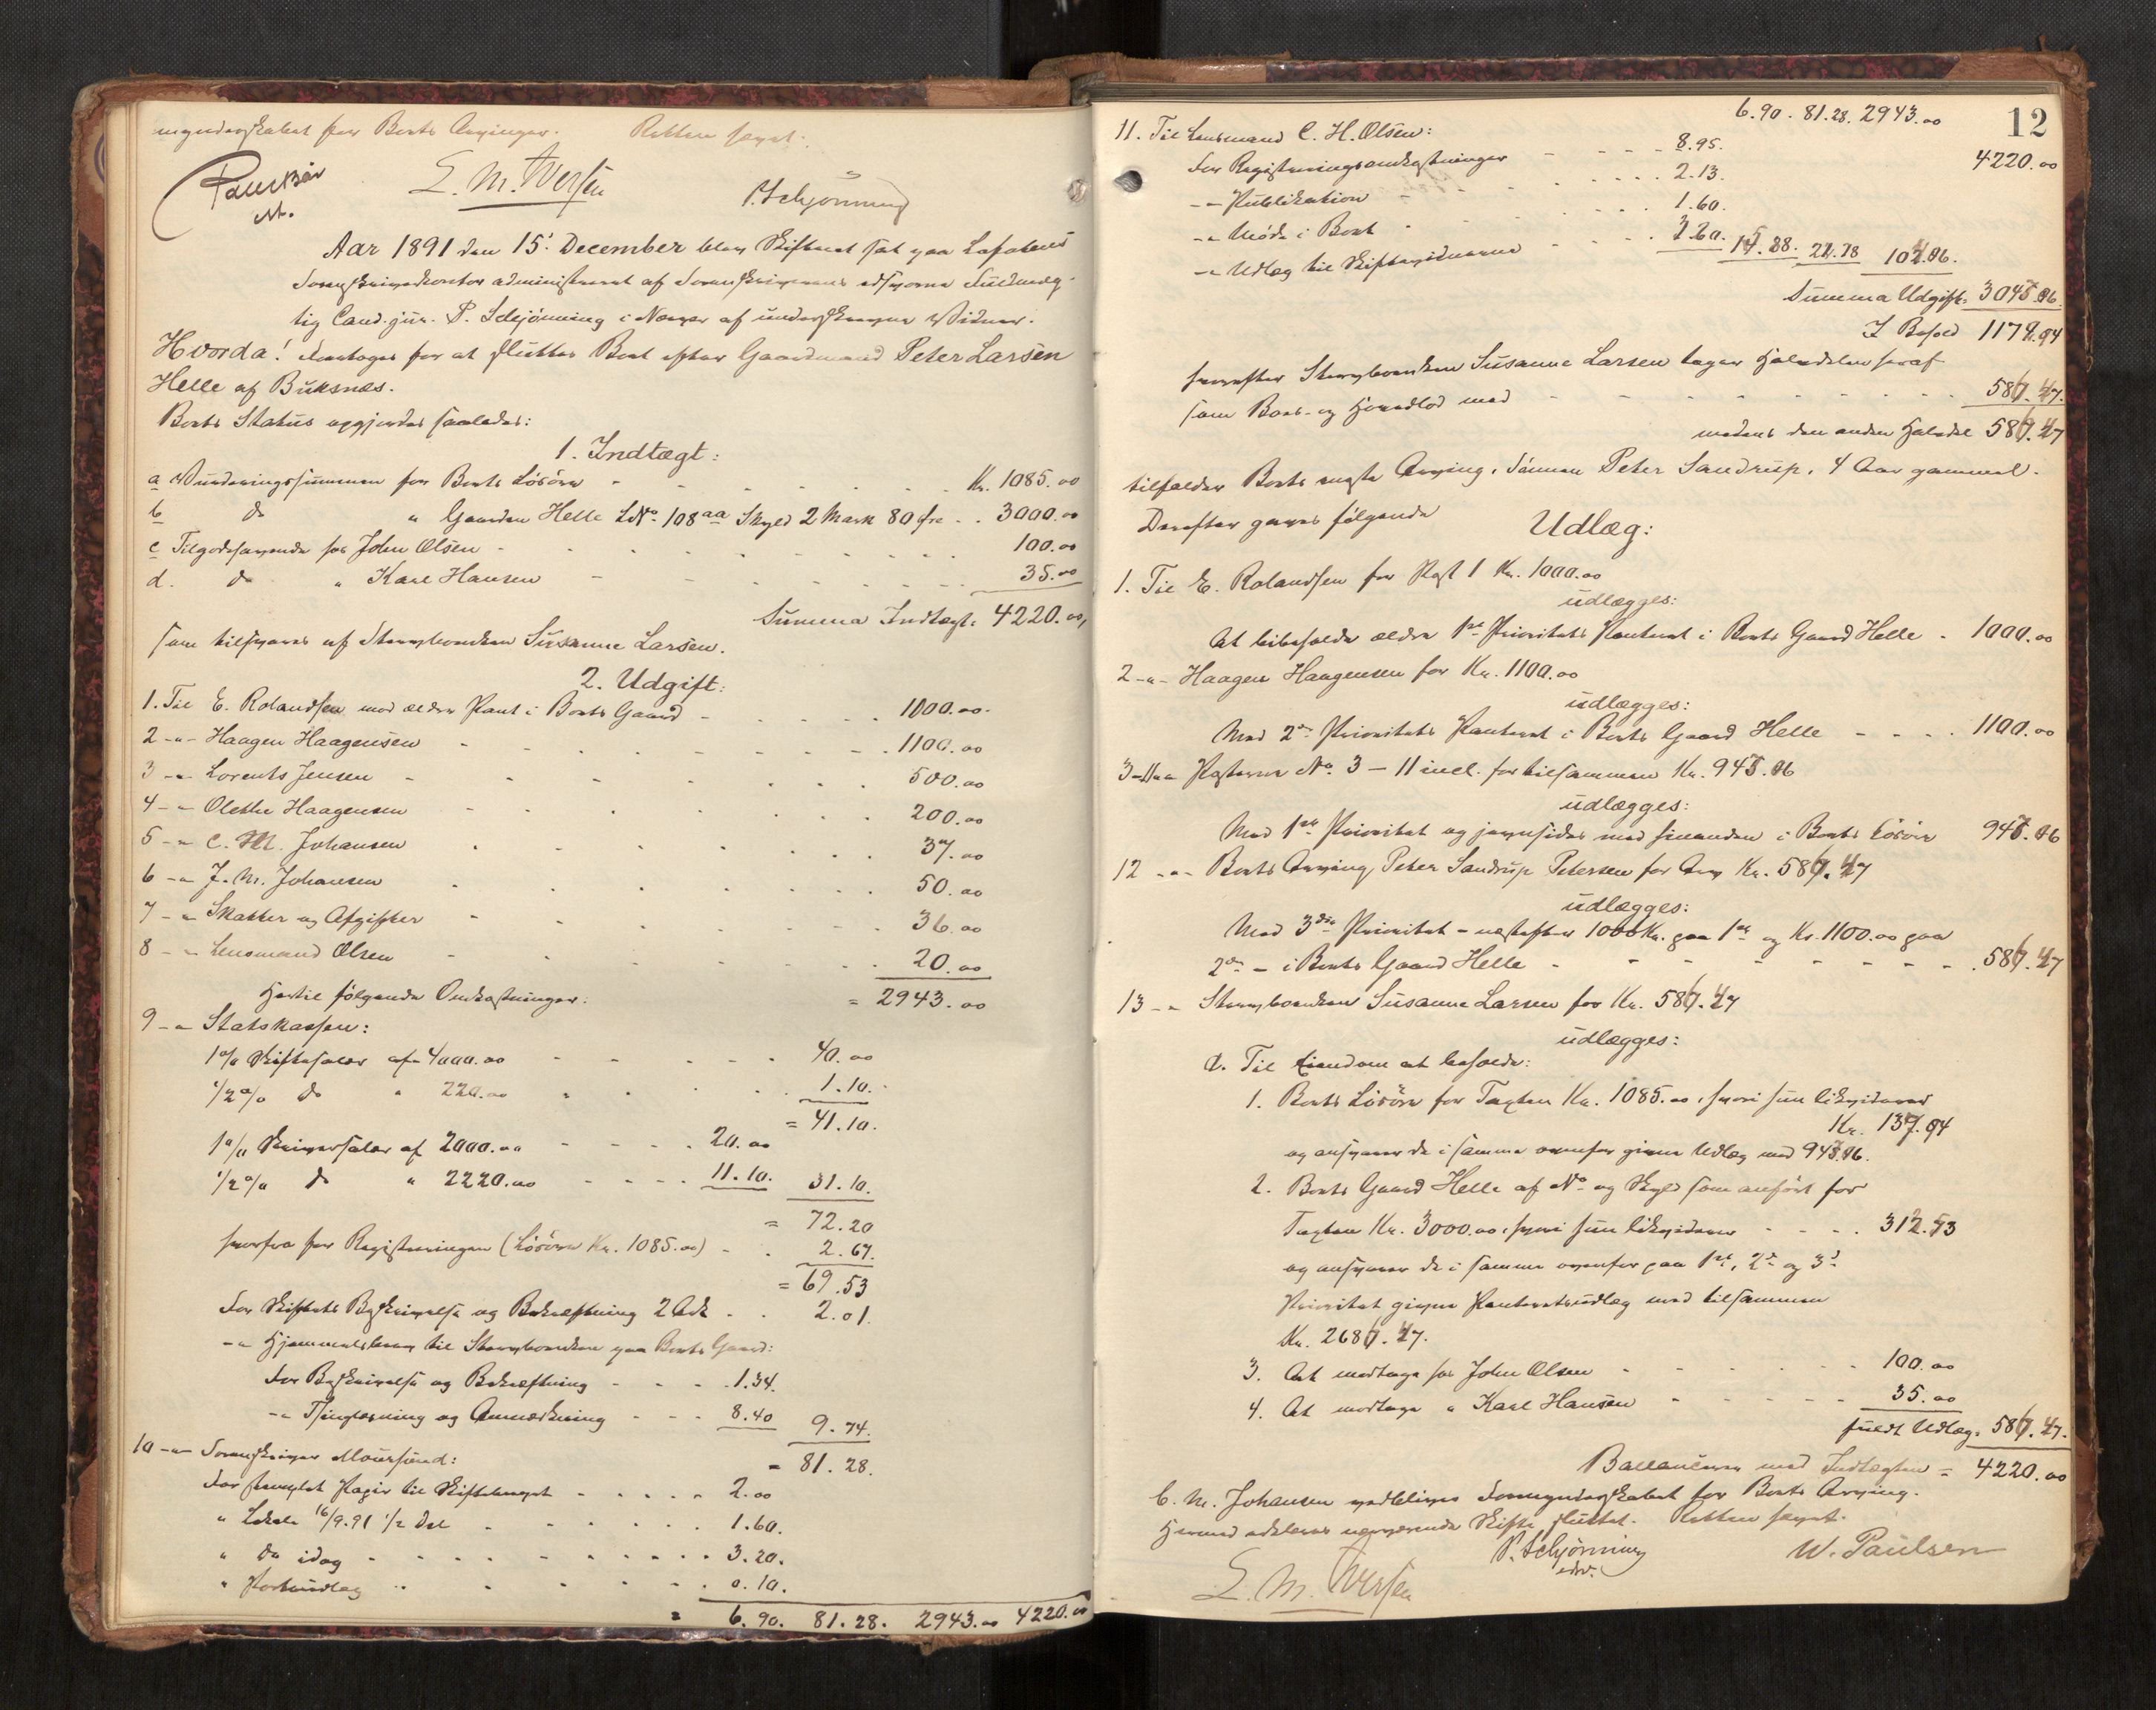 mynderskabet for Boets Arvinger. Retten hævet.
E. M. Iversen P. Schjönning
Aar 1891 den 15' December blev Skifteret sat paa Lofotens
Sorenskriverkontor administreret af Sorenskriverens edsvorne Fuldmæg-
tig Cand. jur. P. Schjönning i Nærvær af underskrevne Vidner.
Hvorda! Foretoges for at slutte Boet efter Gaardmand Peter Larsen
Helle af Buksnæs.
Boets Status opgjordes saaledes:
1. Indtægt:
a Vurderingssummen for Boets Lösöre - Kr. 1085.00
b do " Gaarden Helle LNo 108 aa Skyld 2 Mark 80 Øre - 3000.00
c Tilgodehavende hos John Olsen - 100.00
d. do " Karl Hansen - 35.00
Summa Indtægt: 4220.00,
som tilsvares af Stervboenken Susanne Larsen.
2. Udgift:
1. Til E. Rolandsen med ældre Pant i Boets Gaard - 1000.00
2 -"- Haagen Haagensen - 1100.00
3 -"- Lorents Jensen - 500.00
4 -"- Olethe Haagensen - 200.00
5 -"- C. M. Johansen - 37.00
6 -"- J. M. Johansen - 50.00
7 -"- Skatter og Afgifter - 36.00
8 -"- Lensmand Olsen - 20.00
Hertil følgende Omkostninger: = 2943.00
9 -"- Statskassen:
1% Skiftesalær af 4000.00 - 40.00
1/2% do " 220.00 - 1.10.
= 41.10.
1% Skriversalær af 2000.00 - 20.00
1/2% do " 2220.00 - 11.10. 31.10.
= 72.20
herfra for Registreringen (Lösöre Kr. 1085.00) - 2.67.
= 69.53
For Skiftets Beskrivelse og Bekræftning 2 Ark - 2.01.
-"- Hjemmelsbrev til Stervboenken paa Boets Gaard:
For Beskrivelse og Bekræftning - 1.34.
-"- Thinglæsning og Anmærkning - 8.40 9.74.
= 81.28.
10 -"- Sorenskriver Moursund:
For stemplet Papir til Skiftebrevet - 2.00
" Lokale 16/9.91 1/2 Del - 1.60.
" do idag - 3.20.
" Portoudlæg - 0.10.
= 6.90. 81.28. 2943.00 4220.00
6.90. 81.28. 2943.00 12
11. Til Lensmand C. H. Olsen: 4220.00
For Registreringsomkostninger - 8.95.
-"- Publikation - 2.13.
-"- Møde i Boet - 1.60.
-"- Udlæg til Skiftevidnerne
Summa Udgift:
I Behold
hvorefter Stervboenken Susanne Larsen tager Halvdelen heraf
som Boes- og Hovedlod med - 587.47.
medens den anden Halvdel 587.47
tilfalder Boets eneste Arving, Sönnen Peter Sandrup, 4 Aar gammel.
Derefter gaves følgende Udlæg:
1. Til E. Rolandsen for Post 1 Kr. 1000.00
udlægges:
At bibeholde ældre 1ste Prioritets Panteret i Boets Gaard Helle - 1000.00
2 -"- Haagen Haagensen for Kr. 1100.00
udlægges:
Med 2den Prioritets Panteret i Boets Gaard Helle - 1100.00
3-11 -"- Posterne No 3 - 11 incl. for tilsammen Kr. 945.06
udlægges:
Med 1ste Prioritet og jevnsides med hinanden i Boets Lösöre 945.06
12 -"- Boets Arving Peter Sandrup Petersen for Arv Kr. 587.47
udlægges:
Med 3die Prioritet - næstefter 1000 Kr. paa 1ste og Kr. 1100.00 paa
2den - i Boets Gaard Helle - 587.47
13 -"- Stervboenken Susanne Larsen for Kr. 587.47
udlægges:
Til Eiendom at beholde:
1. Boets Lösöre for Taxten Kr. 1085.00, hvori hun likviderer
Kr. 139.94
og ansvarer de i samme ovenfor givne Udlæg med 945.06.
2. Boets Gaard Helle af No og Skyld som anført for
Taxten Kr. 3000.00, hvori hun likviderer - 312.53
og ansvarer de i samme ovenfor paa 1ste, 2den og 3die
Prioritet givne Panteretsudlæg med tilsammen
Kr. 2687.47.
3. At modtage hos John Olsen - 100.00
4. At modtage " Karl Hansen - 35.00
fuldt Udlæg: 587.47.
Ballancerer med Indtægten = 4220.00
C. M. Johansen vedbliver Formynderskabet for Boets Arving.
Hermed erklæres nærværende Skifte sluttet. Retten hævet.
P. Schjönning W. Paulsen
edsv.
E. M. Iversen